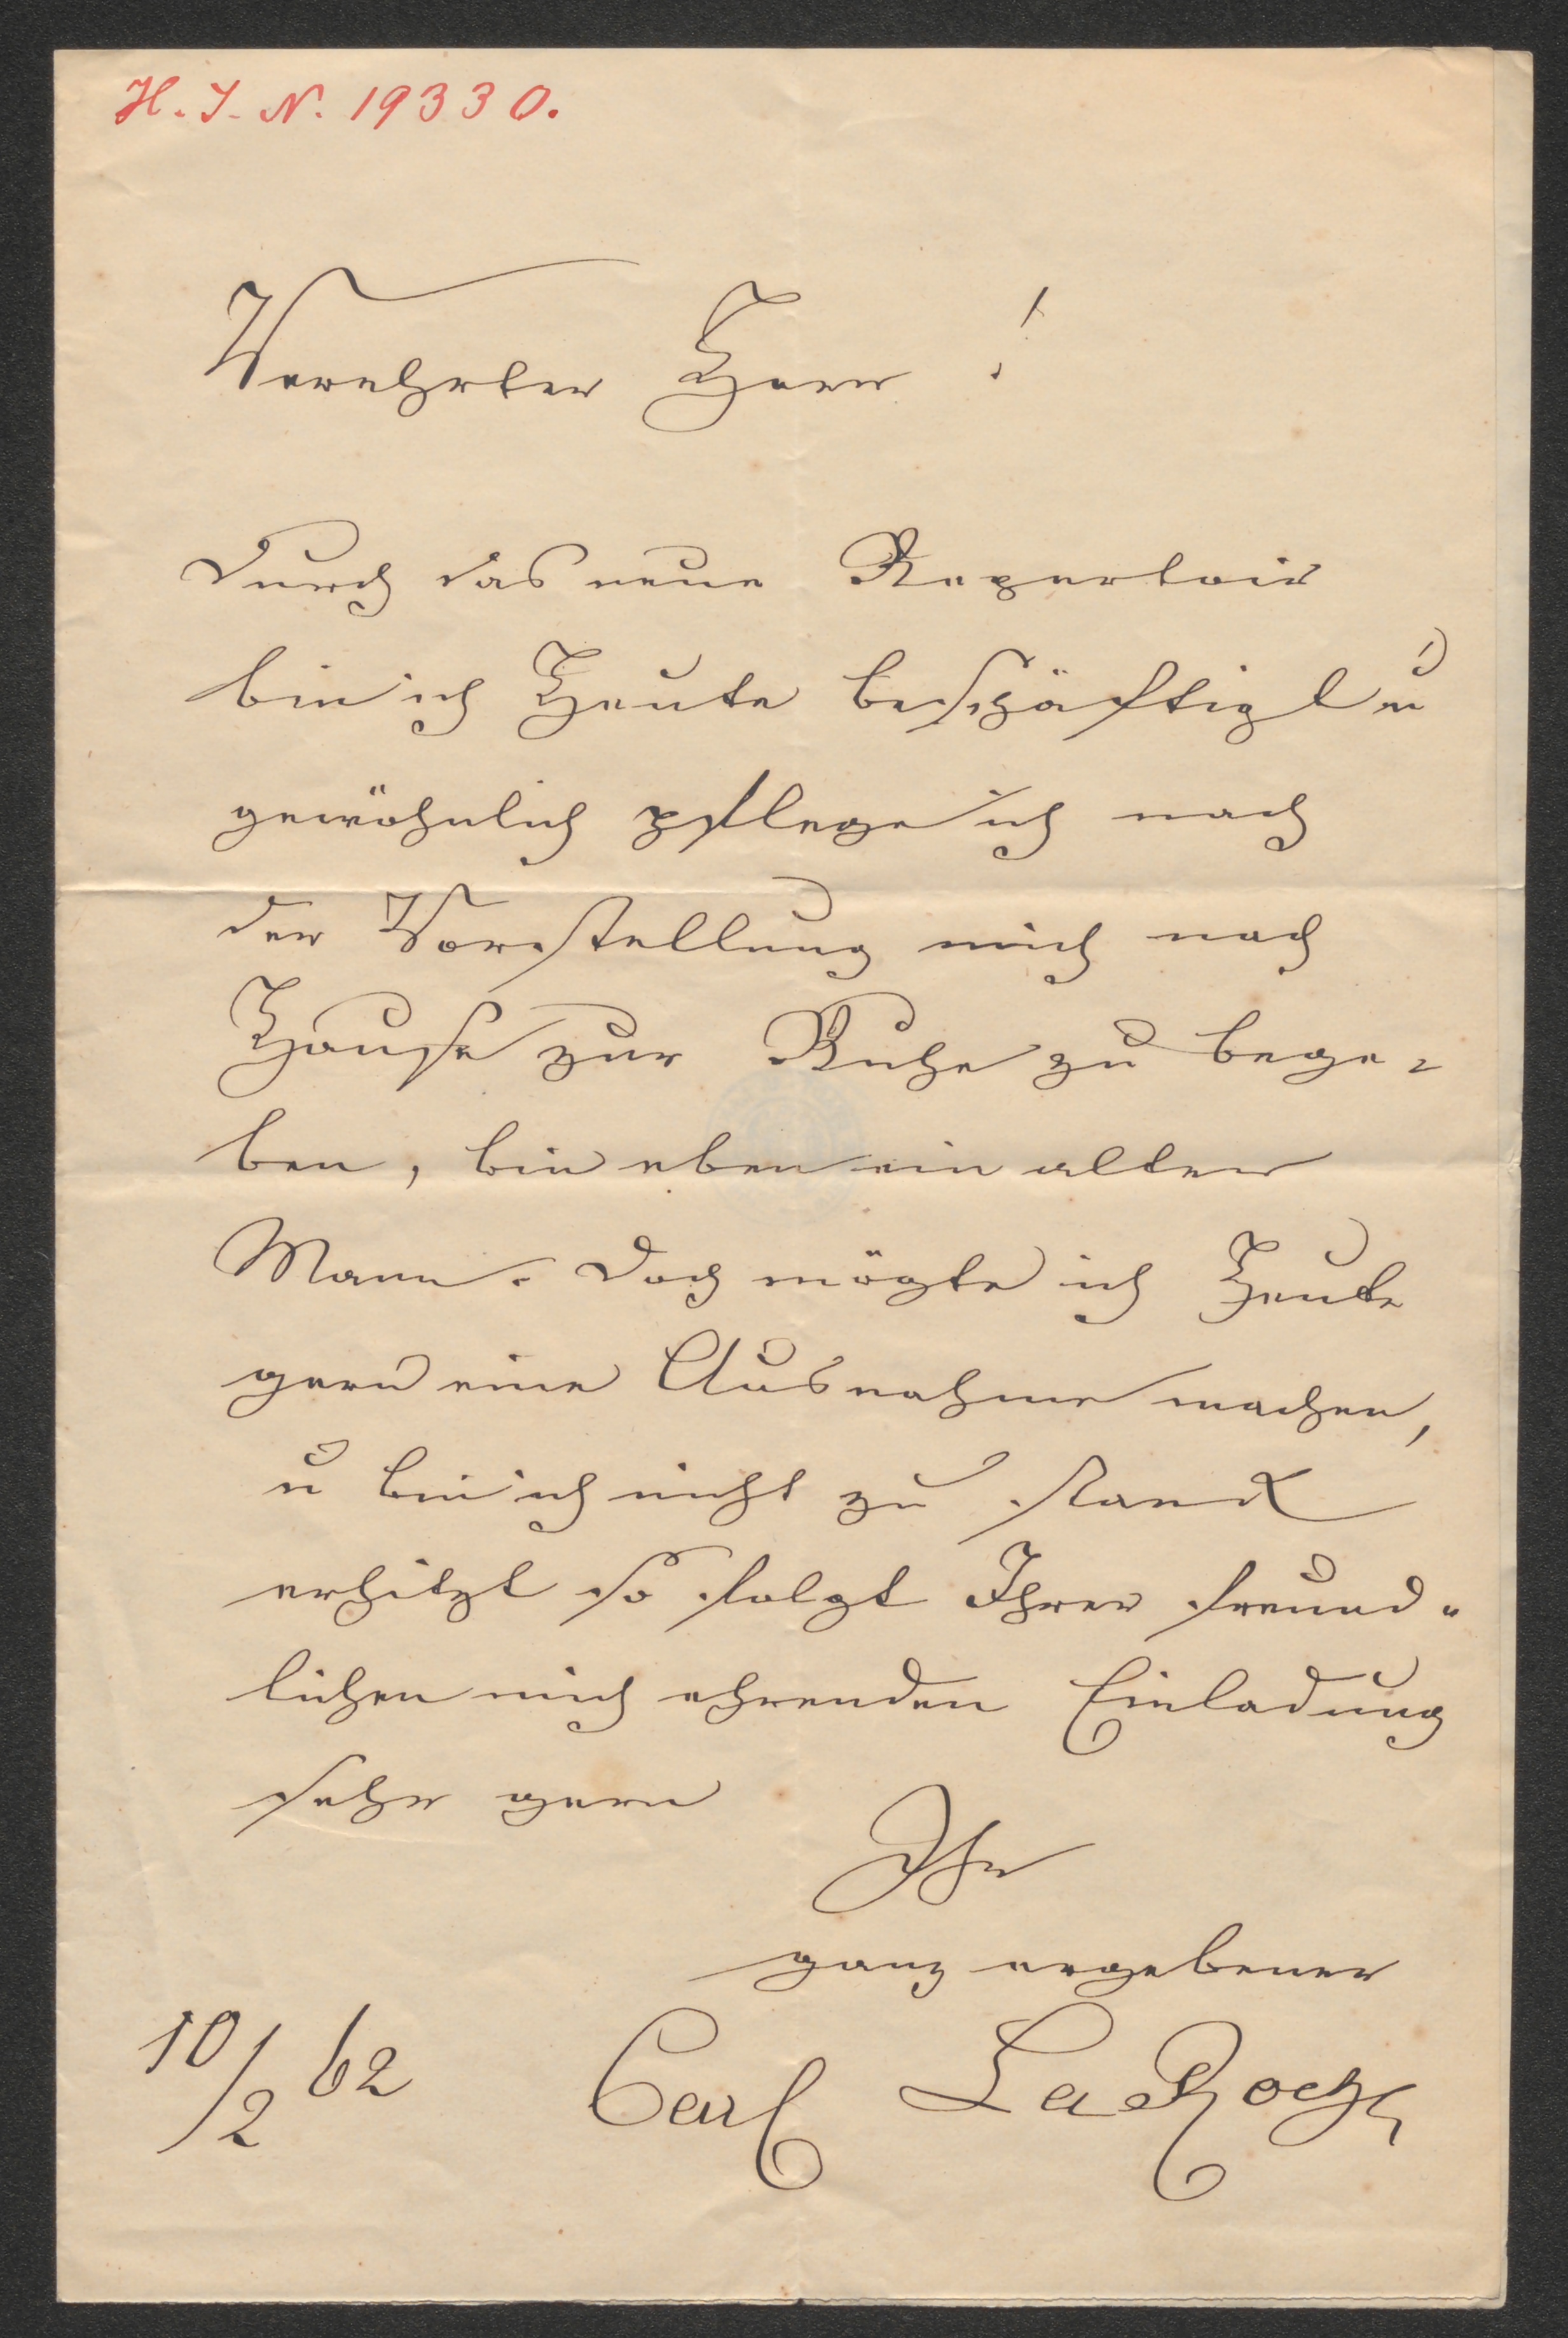 H. I. N. 19330.
Verehrter Herr!
Durch das neue Repertoir
bin ich Heute beschäftigt u
gewöhnlich pflege ich nach
der Vorstellung mich nach
Hause zur Ruhe zu bege-
ben, bin eben ein alter
Mann. Doch mögte ich Heute
gern eine Ausnahme machen,
u bin ich nicht zu stark
erhitzt so folgt Ihrer freund-
lichen mich ehrenden Einladung
sehr gern
Ihr
ganz ergebener
10/2 62 Carl La Roche